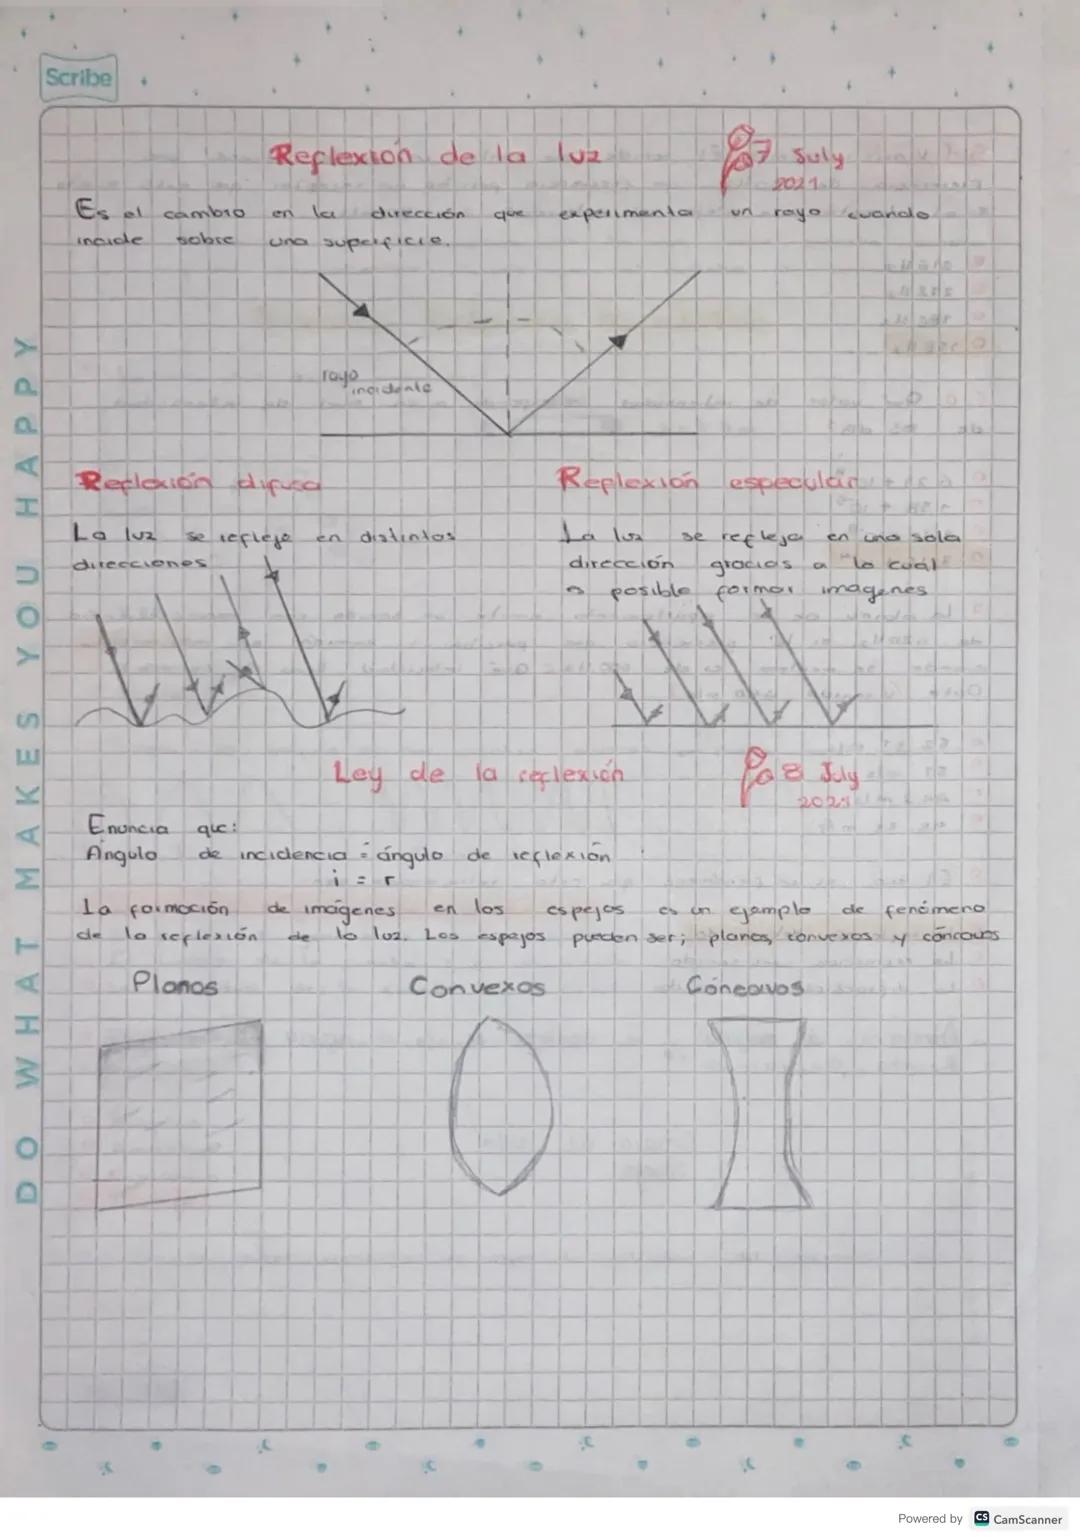 Scribe
Reflexión de la luz
7 July
2021
Es el cambio en la dirección que experimenta un rayo cuando
incide sobre una superficie.
rayo
incidente
Reflexión difusa
La luz se refleja en distintas
direcciones
Reflexión especular
La luz se refleja en una sola
dirección gracias a lo cual
es posible formar imagenes
Ley de la reflexión
8 July
2021
Enuncia que:
Angulo de incidencia = ángulo de reflexión
i = r
La formación de imágenes en los espejos es un ejemplo de fenómeno
de la reflexión de la luz. Los espejos pueden ser; planos, convexos y cóncavos
Planos
Convexos
Cóncavos
DO WHAT MAKES YOU HAPPY
Powered by CS CamScanner